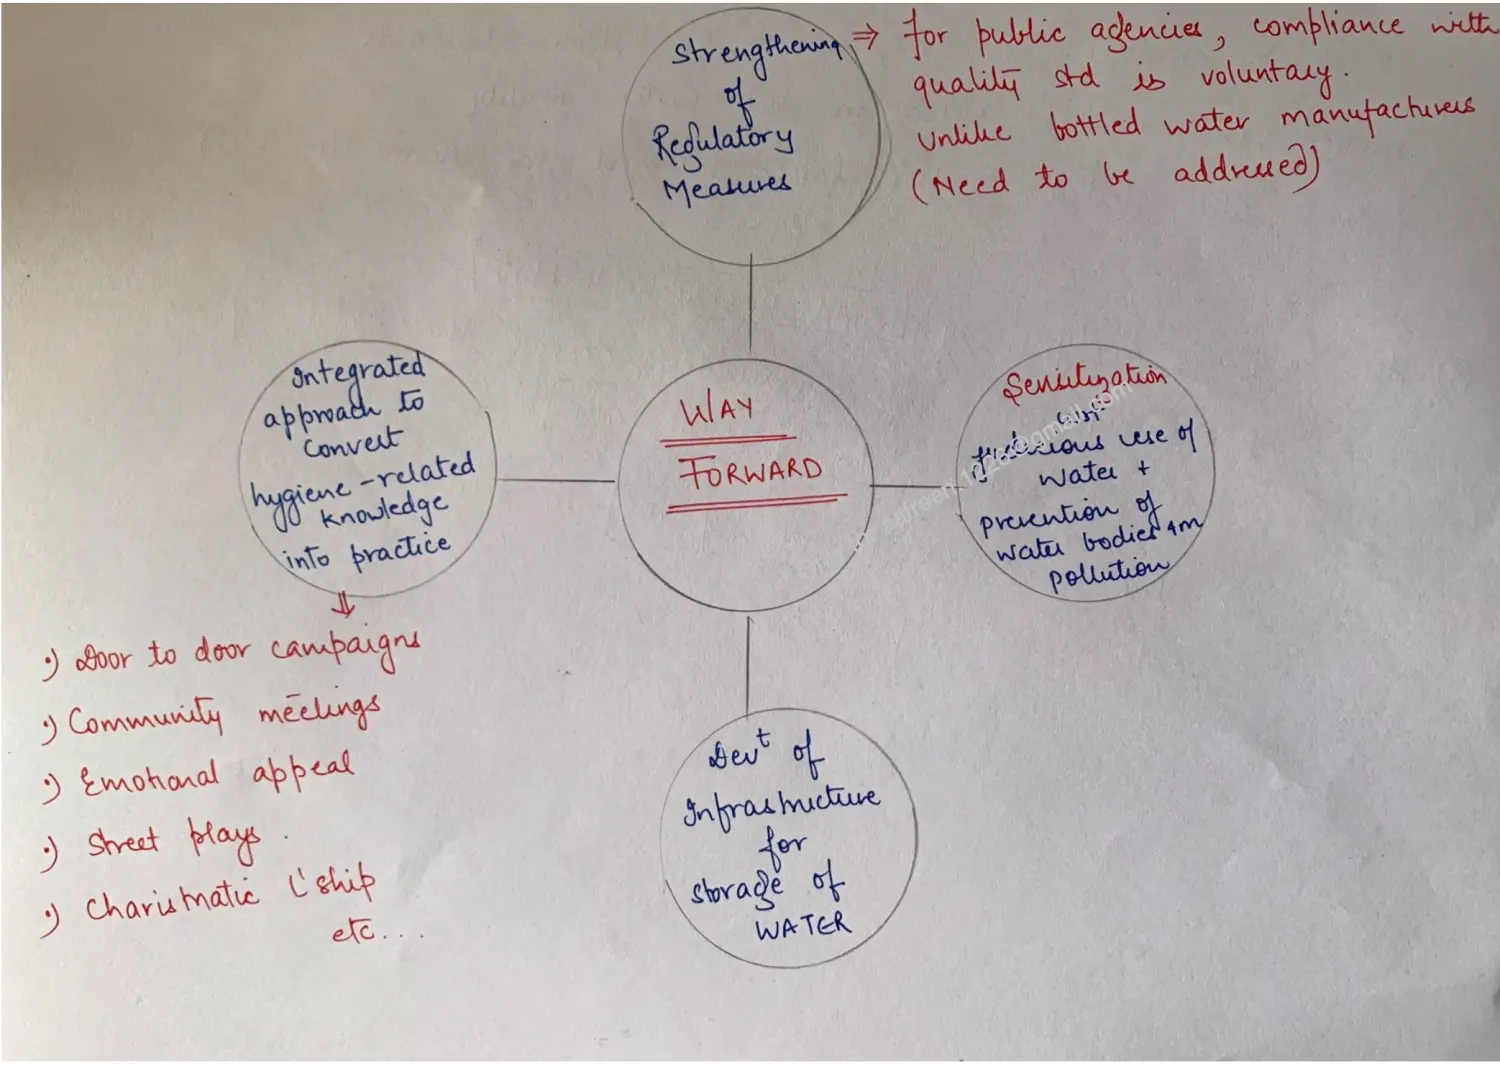 Strengthening
of
Regulatory
Measures
⇒ for public agencies, compliance with
quality std is voluntary.
unlike bottled water manufacturers
(Need to be addressed)
Integrated
approach to
convert
hygiene-related
knowledge
into practice
WAY
FORWARD
Sensitization
judicious use of
water +
prevention of
water bodies
pollution
⇓
•) Door to door campaigns
•) Community meetings
•) Emotional appeal
•) Street plays.
•) Charismatic L'ship
etc...
Devt of
Infrastructure
for
storage of
WATER